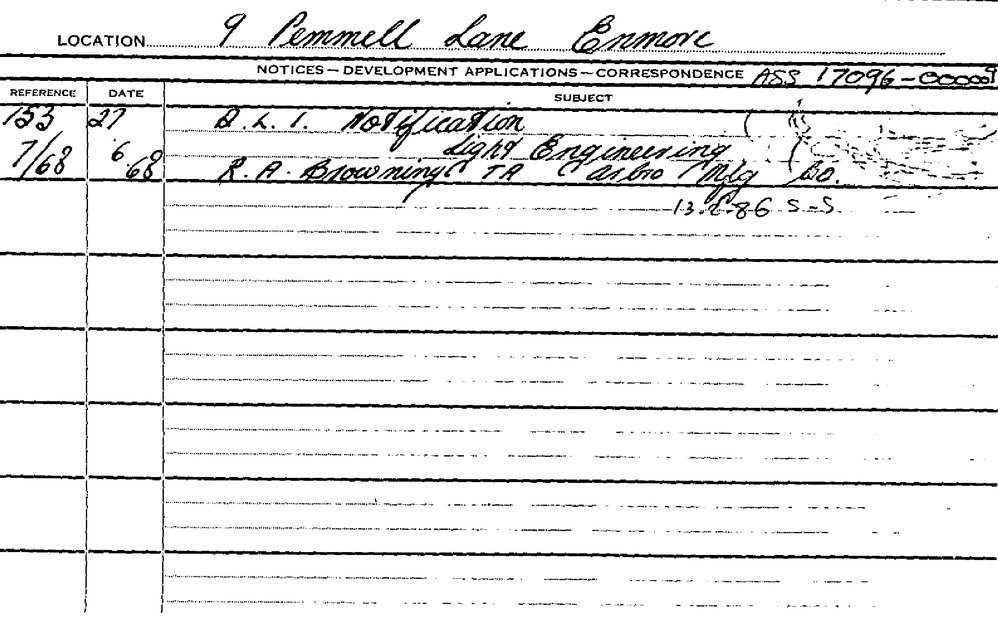 LOCATION 9 Pemmell Lane Enmore
NOTICES — DEVELOPMENT APPLICATIONS — CORRESPONDENCE ASS 17096-00009
REFERENCE DATE SUBJECT
153 27 D.L.I. Notification
7/68 6 Light Engineering
68 R. A. Browning TA Mfg Co.
86 S-S